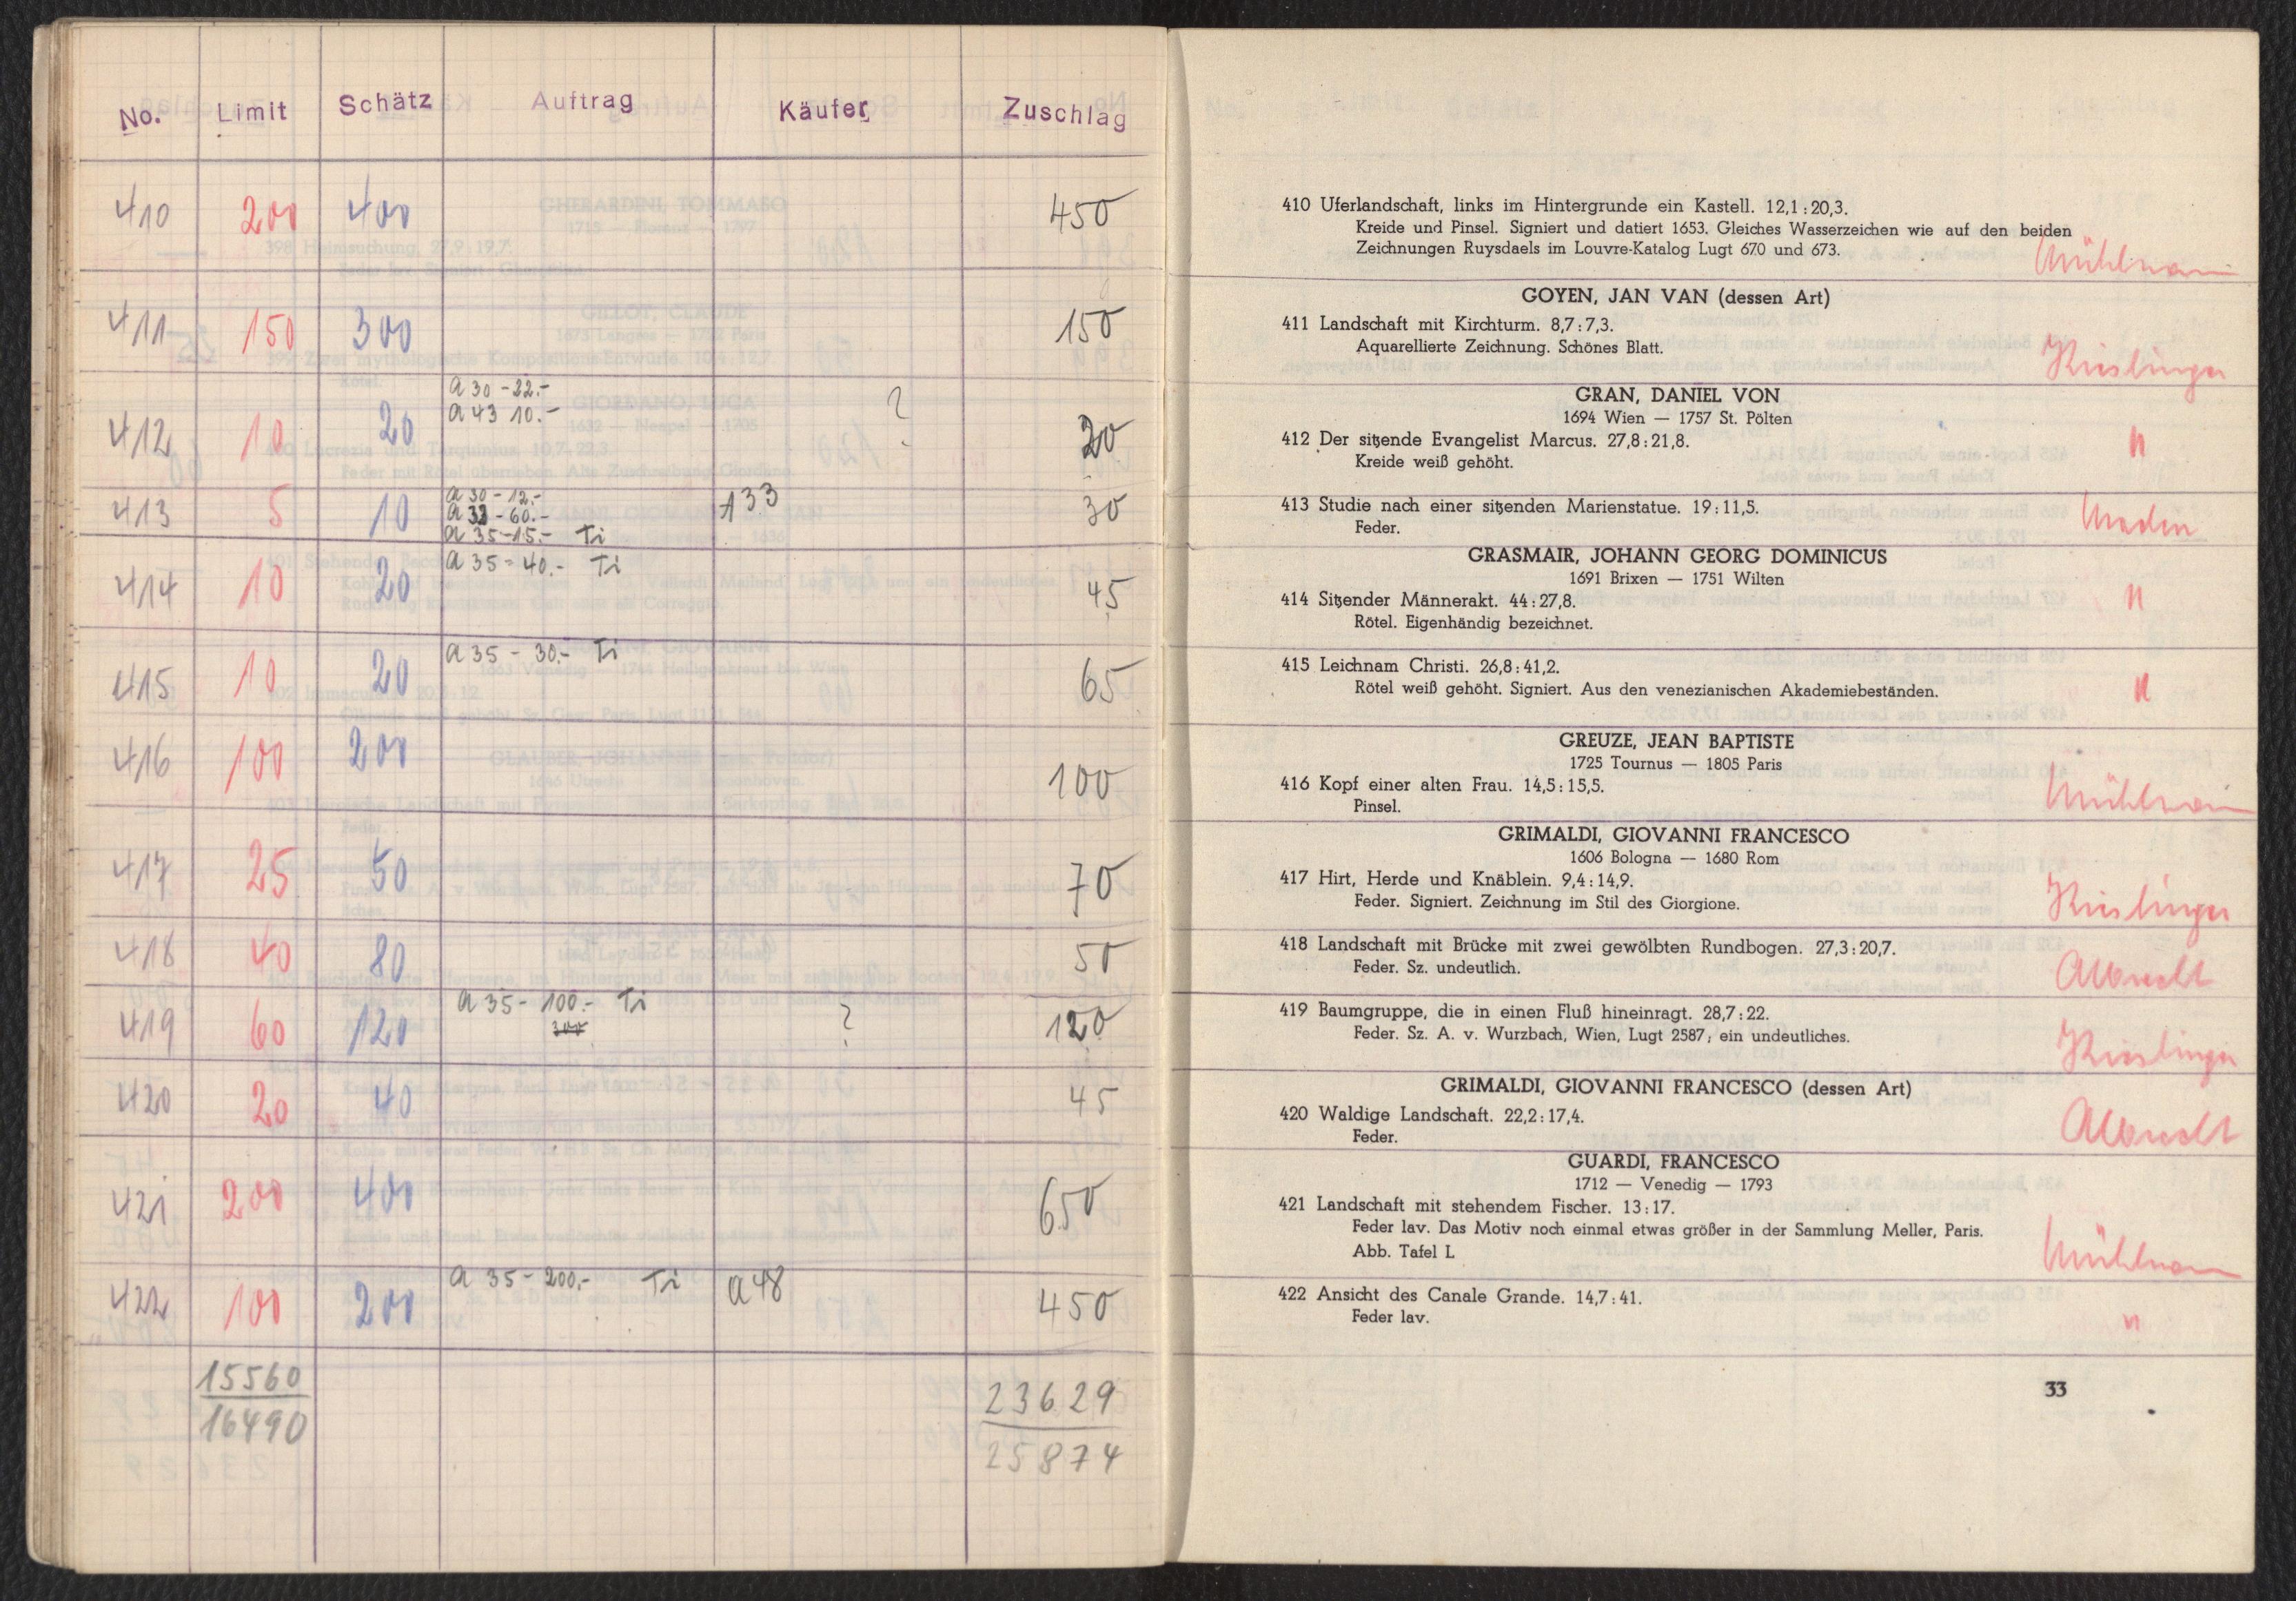 No. Limit Schätz Auftrag Käufer Zuschlag
410 200 400 450
411 150 300 150
a 30 - 22.-
a 43 10.-
412 10 20 ? 20
a 30 - 12.-
413 5 10 a 33 - 60.- A33 30
a 35 - 15.- Ti
a 35 - 40.- Ti
414 10 20 45
a 35 - 30.- Ti
415 10 20 65
416 100 200 100
417 25 50 70
418 40 80 50
a 35 - 100.- Ti
419 60 120 300 ? 120
420 20 40 45
421 200 400 650
a 35 - 200.- Ti a 48
422 100 200 450
15560 23629
16490 25874
410 Uferlandschaft, links im Hintergrunde ein Kastell. 12,1 : 20,3.
Kreide und Pinsel. Signiert und datiert 1653. Gleiches Wasserzeichen wie auf den beiden
Zeichnungen Ruysdaels im Louvre-Katalog Lugt 670 und 673.
Mühlmann
GOYEN, JAN VAN (dessen Art)
411 Landschaft mit Kirchturm. 8,7 : 7,3.
Aquarellierte Zeichnung. Schönes Blatt.
Kieslinger
GRAN, DANIEL VON
1694 Wien — 1757 St. Pölten
412 Der sitzende Evangelist Marcus. 27,8 : 21,8. "
Kreide weiß gehöht.
413 Studie nach einer sitzenden Marienstatue. 19 : 11,5.
Feder.
GRASMAIR, JOHANN GEORG DOMINICUS
1691 Brixen — 1751 Wilten
414 Sitzender Männerakt. 44 : 27,8. "
Rötel. Eigenhändig bezeichnet.
415 Leichnam Christi. 26,8 : 41,2.
Rötel weiß gehöht. Signiert. Aus den venezianischen Akademiebeständen. "
GREUZE, JEAN BAPTISTE
1725 Tournus — 1805 Paris
416 Kopf einer alten Frau. 14,5 : 15,5. Mühlmann
Pinsel.
GRIMALDI, GIOVANNI FRANCESCO
1606 Bologna — 1680 Rom
417 Hirt, Herde und Knäblein. 9,4 : 14,9.
Feder. Signiert. Zeichnung im Stil des Giorgione. Kieslinger
418 Landschaft mit Brücke mit zwei gewölbten Rundbogen. 27,3 : 20,7.
Feder. Sz. undeutlich. Albrecht
419 Baumgruppe, die in einen Fluß hineinragt. 28,7 : 22.
Feder. Sz. A. v. Wurzbach, Wien, Lugt 2587; ein undeutliches. Kieslinger
GRIMALDI, GIOVANNI FRANCESCO (dessen Art)
420 Waldige Landschaft. 22,2 : 17,4. Albrecht
Feder.
GUARDI, FRANCESCO
1712 — Venedig — 1793
421 Landschaft mit stehendem Fischer. 13 : 17.
Feder lav. Das Motiv noch einmal etwas größer in der Sammlung Meller, Paris.
Abb. Tafel L Mühlmann
422 Ansicht des Canale Grande. 14,7 : 41.
Feder lav. "
33